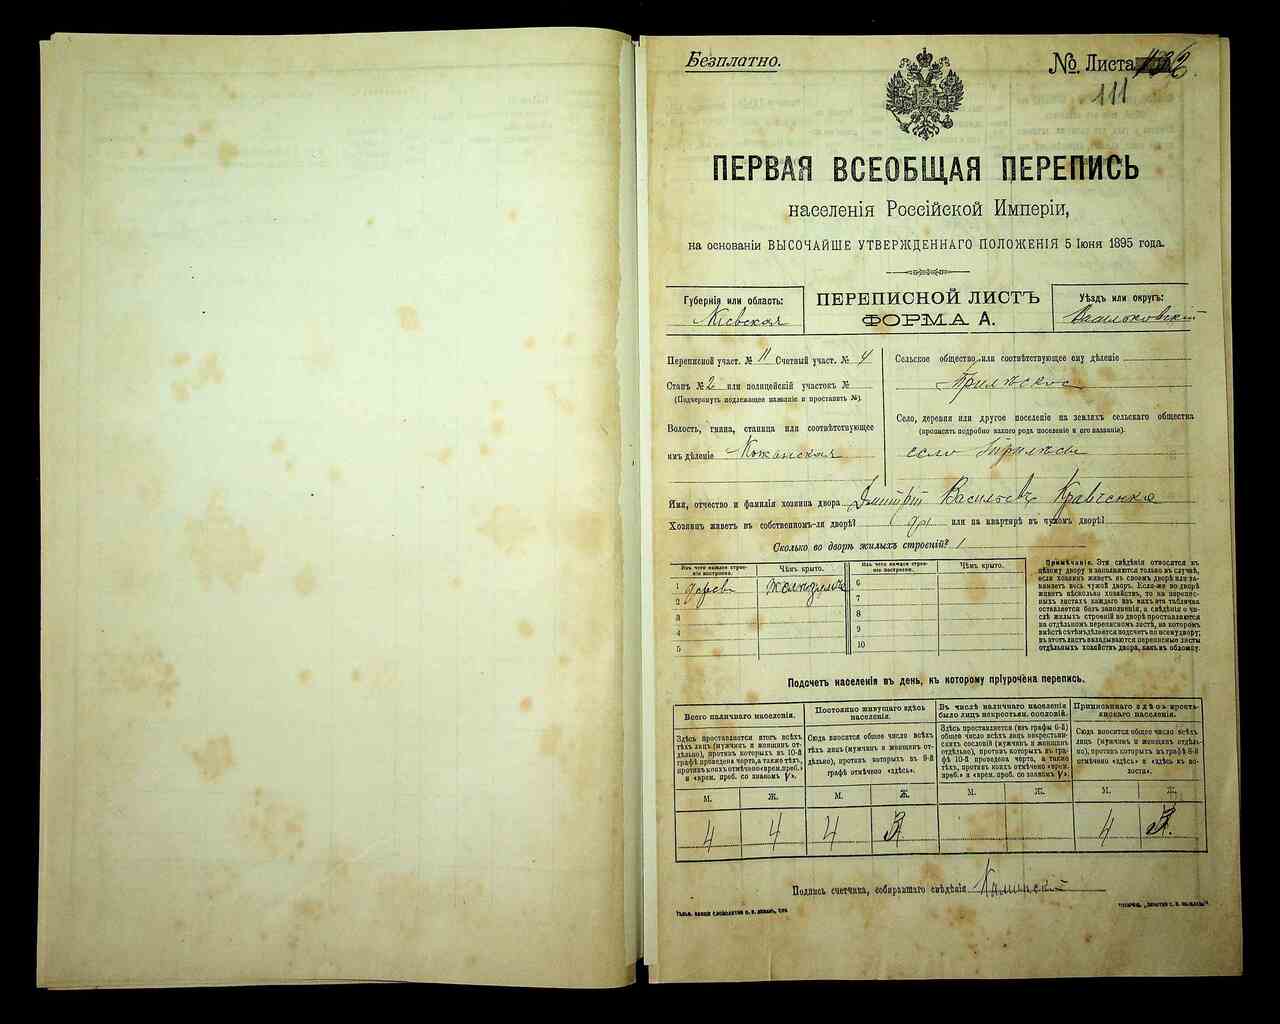 Безплатно.
№ Листа
111
ПЕРВАЯ ВСЕОБЩАЯ ПЕРЕПИСЬ
населенія Россійской Имперіи,
на основаніи ВЫСОЧАЙШЕ УТВЕРЖДЕННАГО ПОЛОЖЕНІЯ 5 Іюня 1895 года.
Губернія или область:
Кіевская
ПЕРЕПИСНОЙ ЛИСТЪ
ФОРМА А.
Уѣздъ или округъ:
Васильковскій
Переписной участ. № 11 Счетный участ. № 4
Станъ № 2 или полицейскій участокъ №
(Подчеркнуть подлежащее названіе и проставить №).
Волость, гмина, станица или соотвѣтствующее
имъ дѣленіе Кожанская
Сельское общество или соотвѣтствующее ему дѣленіе
Трилѣское
Село, деревня или другое поселеніе на земляхъ сельскаго общества
(прописать подробно какого рода поселеніе и его названіе).
село Трилѣсы
Имя, отчество и фамилія хозяина двора Дмитрій Васильевъ Кравченко
Хозяинъ живетъ въ собственномъ-ли дворѣ? да или на квартирѣ въ чужомъ дворѣ?
Сколько во дворѣ жилыхъ строеній? 1
Изъ чего каждое строеніе построено.
Чѣмъ крыто.
Изъ чего каждое строеніе построено.
Чѣмъ крыто.
1
2
3
4
5
6
7
8
9
10
Примѣчаніе. Эти свѣдѣнія относятся къ
цѣлому двору и заполняются только въ случаѣ,
если хозяинъ живетъ въ своемъ дворѣ или занимаетъ
весь чужой дворъ. Если-же во дворѣ
живетъ нѣсколько хозяйствъ, то на переписныхъ
листахъ каждаго изъ нихъ эта табличка
оставляется безъ заполненія, а свѣдѣнія о числѣ
жилыхъ строеній во дворѣ проставляются
на отдѣльномъ переписномъ листѣ, на которомъ
вмѣстѣ съ тѣмъ дѣлается подсчетъ по всему двору;
въ этотъ листъ вкладываются переписные листы
отдѣльныхъ хозяйствъ двора, какъ въ обложку.
Подсчетъ населенія въ день, къ которому пріурочена перепись.
Всего наличнаго населенія.
Постоянно живущаго здѣсь
населенія.
Въ числѣ наличнаго населенія
было лицъ некрестьян. сословій.
Приписаннаго здѣсь крестьянскаго
населенія.
Здѣсь проставляется итогъ всѣхъ
тѣхъ лицъ (мужчинъ и женщинъ отдѣльно),
противъ которыхъ въ 10-й
графѣ проведена черта, а также тѣхъ,
противъ коихъ отмѣчено «врем. преб.»
и «врем. преб. со знакомъ V».
Сюда вносится общее число всѣхъ
тѣхъ лицъ (мужчинъ и женщинъ отдѣльно),
противъ которыхъ въ 9-й
графѣ отмѣчено «здѣсь».
Здѣсь проставляется (изъ графы 6-й)
общее число всѣхъ лицъ некрестьянскихъ
сословій (мужчинъ и женщинъ
отдѣльно), противъ которыхъ въ графѣ
10-й проведена черта, а также
тѣхъ, противъ коихъ отмѣчено «врем.
преб.» и «врем. преб. со знакомъ V».
Сюда вносится общее число всѣхъ
лицъ (мужчинъ и женщинъ отдѣльно),
противъ которыхъ въ графѣ 8-й
отмѣчено «здѣсь» и «здѣсь къ волости».
М. Ж. М. Ж. М. Ж. М. Ж.
4 4 4 3 4 3.
Подпись счетчика, собиравшаго свѣдѣнія